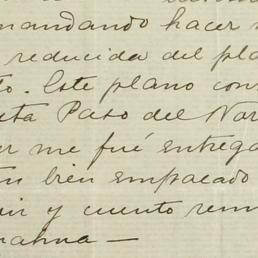 mandando hacer
reducida del pla
to. Este plano con
sta Paso del Nor
er me fué entrega
bien empacado
ir y cuento rem
mañna —